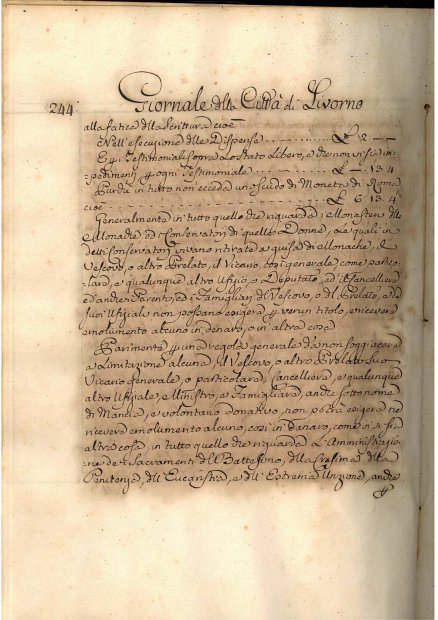 244: Giornale dlla Città di Livorno
alla fatica dlla scrittura cioè
Nell'esecuzione dlle Dispense ₤ 2 — —
E p i Testimoniali sopra Lo stato Libero, e che non vi sia im-
pedimento p ogni Testimoniale ₤ — 13. 4
Purche in tutto non ecceda uno scudo di Moneta di Roma
cioè ₤ 6. 13. 4
Generalmente in tutto quello che riguarda i Monasteri dlle
Monache, ed Conservatori di quelle Donne, Le quali in
detti Conservatori vivano ritirate a guisa di Monache, il
Vescovo, o altro Prelato, il Vicario, così generale come partico-
lare, e qualunque altro Ufizio, o Deputato, ed il Cancelliere
ed anche Parenti, ed i Famigliari di Vescovo, o di Prelato, e da
suoi Ufiziali non possano esigere p verun titolo, e ricevere
emolumento alcuno in denaro, o in altra cosa
Parimente p una regola generale da non soggiacere
a Limitazione alcuna, il Vescovo, o altro Prelato suo
Vicario Generale, o particolare, Cancelliere, e qualunque
altro Ufiziale, e Ministro, e Famigliare, anche sotto nome
di Mancia, e volontario donativo, non potrà esigere ne
ricevere emolumento alcuno, così in danaro, come in
altra cosa, in tutto quello che riguarda L'Amministrazio-
ne de Sacramenti dl Battesimo, dlla Cresima dlla
Penitenza, dll'Eucaristia, e dll'Estrema Unzione, anche
p